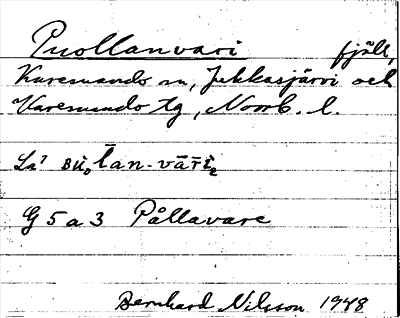 Puollanvari fjäll,
Karesuando sn, Jukkasjärvi och
Karesuando tg, Norrb. l.
G 5 a 3 Pållavare
Bernhard Nilsson 1948